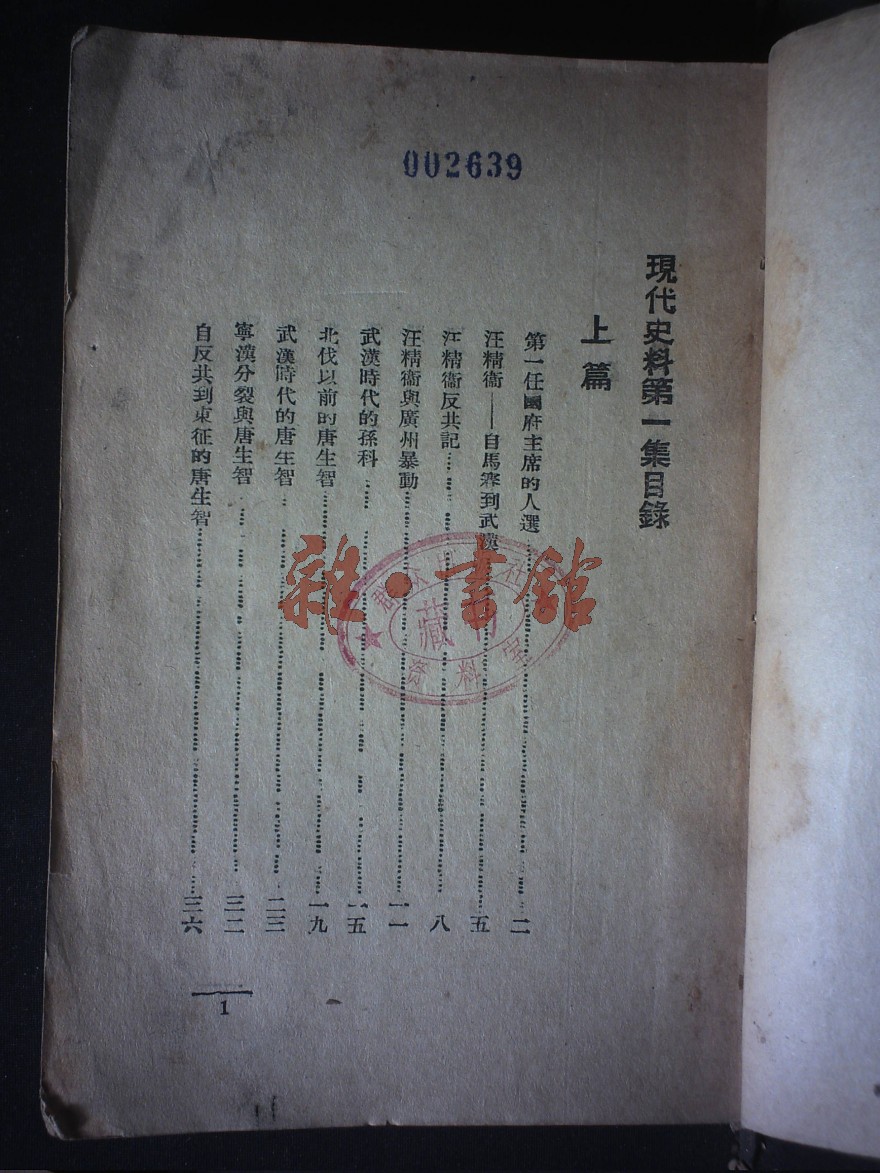 002639
現代史料第一集目錄
上篇
第一任國府主席的人選 二
汪精衞——自馬賽到武漢 五
汪精衞反共記 八
汪精衞與廣州暴動 一一
武漢時代的孫科 一五
北伐以前的唐生智 一九
武漢時代的唐生智 二三
寧漢分裂與唐生智 三二
自反共到東征的唐生智 三六
1
雜·書館
藏書
資料室